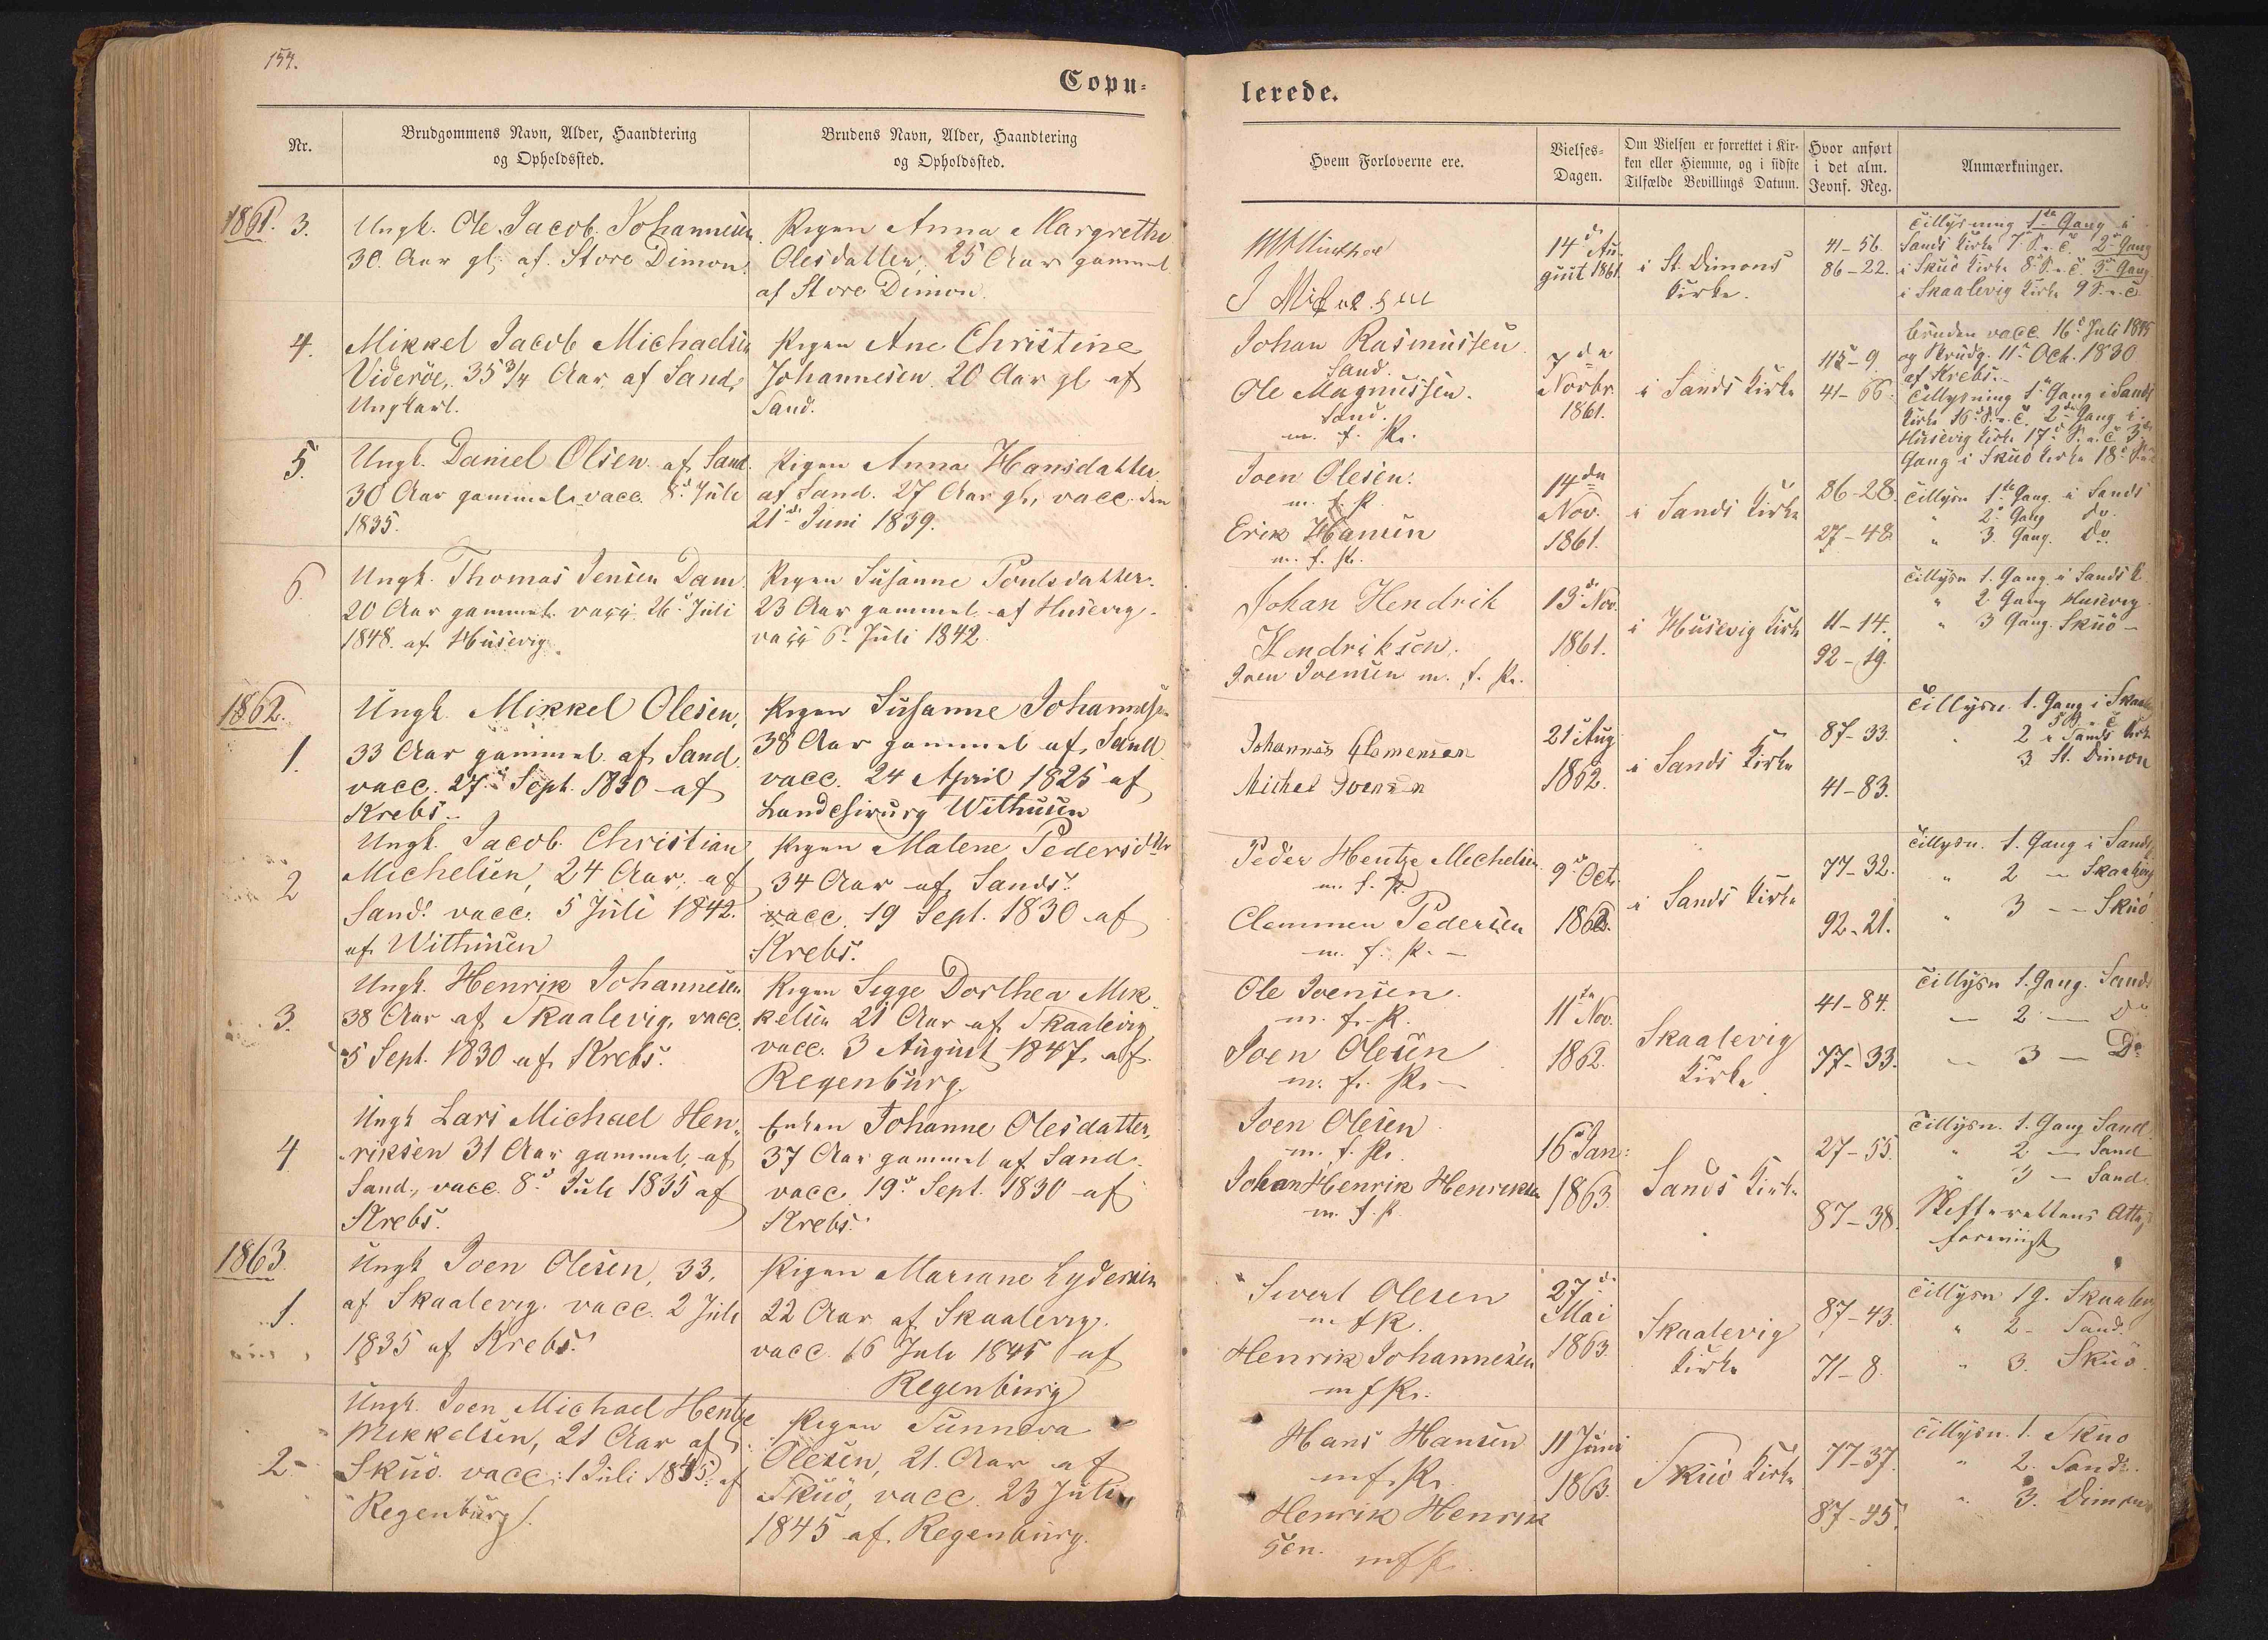 154.
Copu=
lerede.
Nr.
Brudgommens Navn, Alder, Haandtering
og Opholdssted.
Brudens Navn, Alder, Haandtering
og Opholdssted.
Hvem Forloverne ere.
Vielses=
Dagen.
Om Vielsen er forrettet i Kir-
ken eller Hiemme, og i sidste
Tilfælde Bevillings Datum.
Hvor anført
i det alm.
Jevnf. Reg.
Anmærkninger.
1861. 3.
Ungk. Ole Jacob Johannesen
30 Aar gl. af Store Dimon.
Pigen Anna Margrethe
Olesdatter, 25 Aar gammel
af Store Dimon.
14d Au-
gust 1861.
i St. Dimons
Kirke.
41-56.
86-22.
Tillysning 1ste Gang i
Sands Kirke 7 S. e. T. 2den Gang
i Skuö Kirke 8 S. e. T. 3d Gang
i Skaalevig Kirke 9 S. e. T.
4.
Mikkel Jacob Michaelsen
Videröe, 35 3/4 Aar af Sand,
Ungkarl.
Pigen Ane Christine
Johannesen 20 Aar gl. af
Sand.
Johan Rasmussen
Sand.
Ole Magnussen.
Sand.
m. f. P.
7de
Novbr.
1861.
i Sands Kirke
115-9.
41-66.
Bruden vacc. 16d Juli 1845
og Brudg. 11d Oct. 1830
af Krebs.
Tillysning 1ste Gang i Sands
Kirke 16d S. e. T. 2den Gang i
Husevig Kirke 17d S. e. T. 3die
Gang i Skuö Kirke 18d
5.
Ungk. Daniel Olsen af Sand.
30 Aar gammel vacc. 8d Juli
1835.
Pigen Anna Hansdatter
af Sand. 27 Aar gl., vacc. den
21de Juni 1839.
Joen Olesen.
m. f. P.
Erik Hansen
m. f. P.
14de
Nov.
1861.
i Sands Kirke
86-28.
27-48.
Tillysn 1ste Gang i Sands
" 2. Gang do.
" 3. Gang. Do.
6.
Ungk. Thomas Jensen Dam.
20 Aar gammel. vacc. 26d Juli
1848. af Husevig.
Pigen Susanne Poulsdatter.
23 Aar gammel af Husevig.
vacc 6d Juli 1842.
Johan Hendrik
Hendriksen.
Joen Joensen m. f. P.
13d Nov.
1861.
i Husevig Kirke
11-14.
92-19.
Tillysn 1. Gang i Sands K.
" 2 Gang Husevig
" 3 Gang. Skuö
1862.
1.
Ungk. Mikkel Olesen,
33 Aar gammel af Sand
vacc. 27d Sept. 1830 af
Krebs.
Pigen Susanne Johannesen
38 Aar gammel af Sand
vacc. 24 April 1825 af
Landchirurg Withusen
Johannes Clemensen
Michel Joensen
21d Aug
1862.
i Sands Kirke
87-33.
41-83.
Tillysn. 1. Gang i Skaale
2 i Sands Kirke
3 St. Dimon
2
Ungk. Jacob Christian
Michelsen, 24 Aar, af
Sand. vacc. 5 Juli 1842.
af Withusen
Pigen Malene Pedersdtr
34 Aar af Sands.
vacc. 19 Sept. 1830 af
Krebs.
Peder Hentze Michelsen
m. f. P.
Clemmen Pedersen
m. f. P.
9d Oct.
1862.
i Sands Kirke
77-32.
92-21.
Tillysn. 1. Gang i Sands
" 2 - Skaalevig
" 3 - - Skuö
3.
Ungk. Henrik Johannesen
38 Aar af Skaalevig, vacc.
5 Sept. 1830 af Krebs.
Pigen Sigge Dorthea Mik
kelsen 21 Aar af Skaalevig
vacc. 3 August 1847. af
Regenburg.
Ole Joensen.
m. f. P.
Joen Olesen
m. f. P.
11te Nov.
1862.
Skaalevig
Kirke
41-84.
77-33.
Tillysn 1. Gang. Sands
- 2 - Do
- 3 - Do
4
Ungk Lars Michael Hen-
riksen 31 Aar gammel af
Sand, vacc. 8d Juli 1835 af
Krebs.
Enken Johanne Olesdatter,
37 Aar gammel af Sand.
vacc. 19d Sept. 1830 af
Krebs.
Joen Olesen
m. f. P.
Johan Henrik Henriksen
m. f. P.
16d Jan:
1863.
Sands Kirke
27-55.
87-38.
Tillysn. 1. Gang Sand.
" 2 - Sand
" 3 - Sand.
Skifterettens Attest
foreviist
1863.
1.
Ungk Joen Olesen, 33,
af Skaalevig. vacc. 2 Juli
1835 af Krebs.
Pigen Mariane Lydersen
22 Aar af Skaalevig.
vacc. 16 Juli 1845 af
Regenburg
Sivert Olesen
m f P.
Henrik Johannesen
m f P.
27d
Mai
1863.
Skaalevig
Kirke
87-43.
71-8.
Tillysn 1 G. Skaalevig
" 2 - Sand.
" 3. Skuö.
2-
Ungk. Joen Michael Hentze
Mikkelsen, 21 Aar af
Skuö. vacc. 1 Juli 1845. af
Regenburg.
Pigen Sunneva
Olesen, 21. Aar af
Skuö, vacc. 23 Juli
1845 af Regenburg.
Hans Hansen
m f. P.
Henrik Henrik
sen. m f P.
11 Juni
1863.
Skuö Kirke
77-37.
87-45.
Tillysn. 1. Skuö
" 2. Sand.
" 3. Dimon